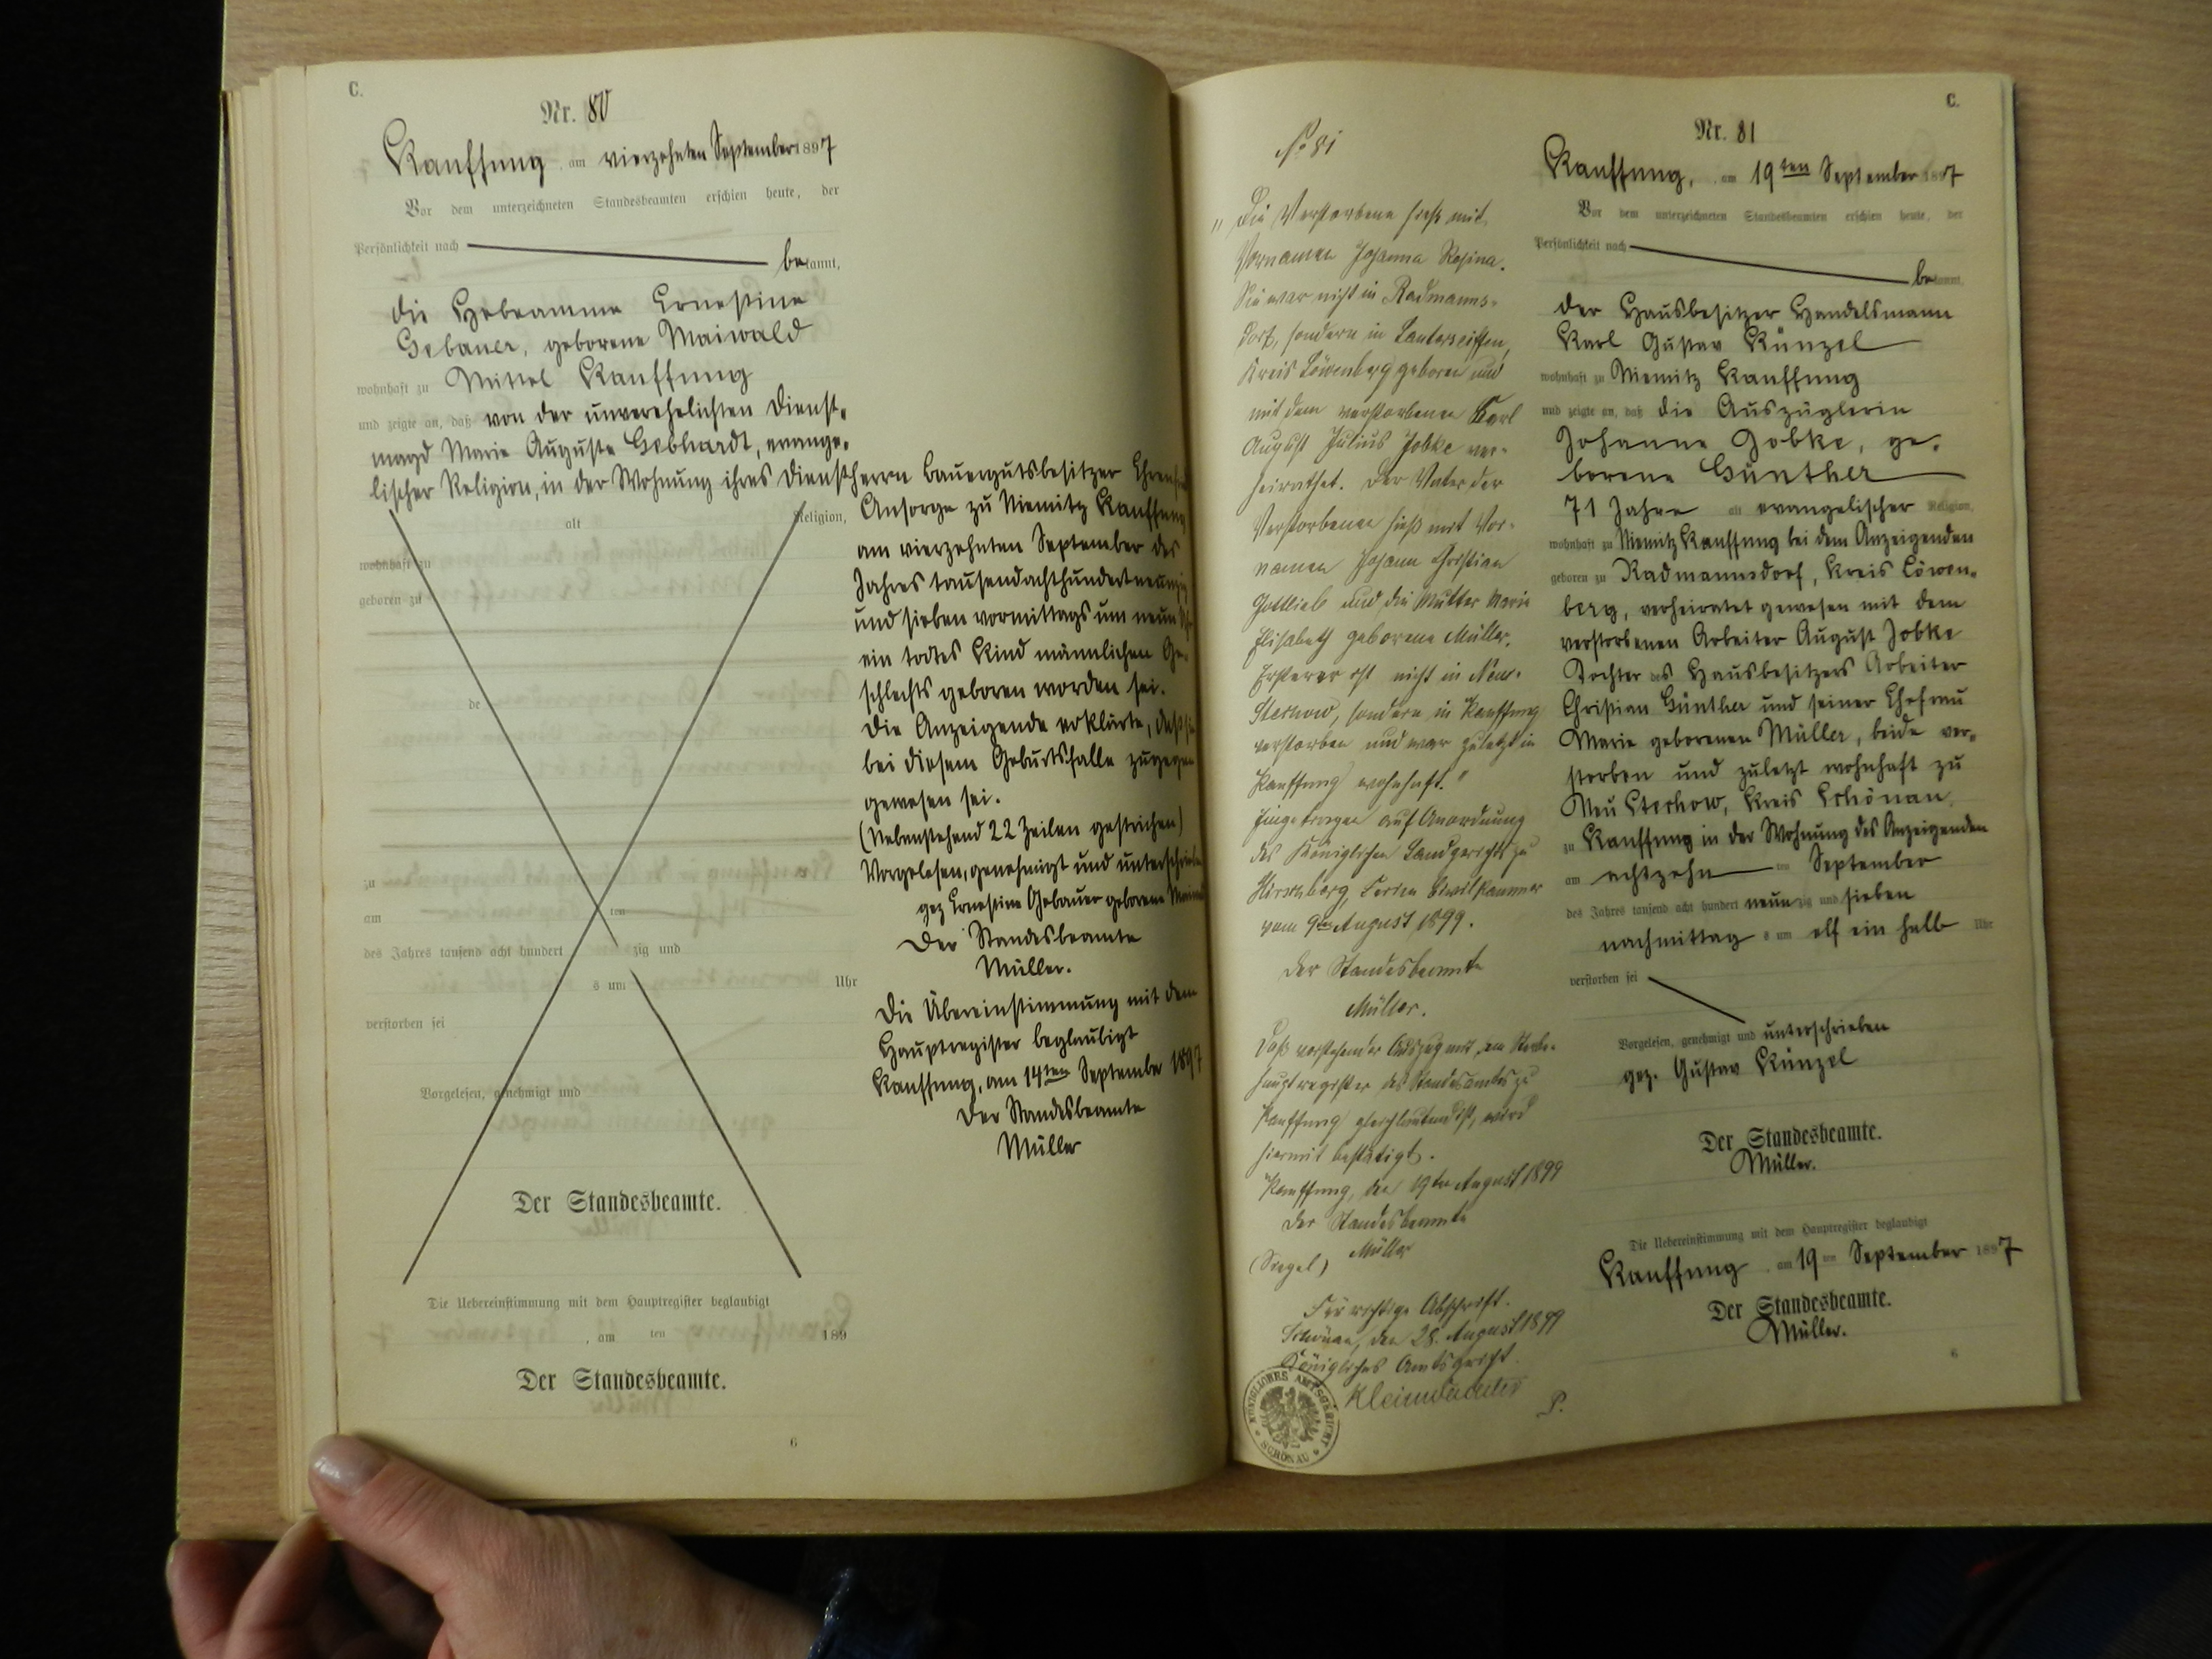 C.
Nr. 80
Kauffung, am vierzehnten September 1897
Vor dem unterzeichneten Standesbeamten erschien heute, der
Persönlichkeit nach
bekannt,
die Hebeamme Ernestine
Gebauer, geborene Maiwald
wohnhaft zu Mittel Kauffung
und zeigte an, daß von der unverehelichten Dienst-
magd Marie Auguste Gebhardt, evange-
lischer Religion, in der Wohnung ihres Dienstherrn Bauergutsbesitzer
Ansorge zu Niemitz Kauffung
am vierzehnten September des
Jahres tausendachthundertneunzig
und sieben vormittags um neun
ein todtes Kind männlichen Ge-
schlechts geboren worden sei.
Die Anzeigende erklärte, daß sie
bei diesem Geburtsfalle zugegen
gewesen sei.
(Nebenstehend 22 Zeilen gestrichen)
Vorgelesen, genehmigt und unterschrieben
gez Ernestine Gebauer geborene Maiwald
Der Standesbeamte
Müller.
Die Übereinstimmung mit dem
Hauptregister beglaubigt
Kauffung, am 14ten September 1897
Der Standesbeamte
Müller
alt
Religion,
wohnhaft zu
geboren zu
de
zu
am ten
des Jahres tausend acht hundert zig und
s um Uhr
verstorben sei
Vorgelesen, genehmigt und
Der Standesbeamte.
Die Uebereinstimmung mit dem Hauptregister beglaubigt
, am ten 189
Der Standesbeamte.
6
No 81
"Die Verstorbene hieß mit
Vornamen Johanna Rosina.
Sie war nicht in Radmanns-
dorf, sondern in Lauterseiffen,
Kreis Löwenberg geboren und
mit dem verstorbenen Karl
August Julius Jobke ver-
heirathet. Der Vater der
Verstorbenen hieß mit Vor-
namen Johann Christian
Gottlieb und die Mutter Marie
Elisabeth geborene Müller.
Ersterer ist nicht in Neu-
Stechow, sondern in Kauffung
verstorben und war zuletzt in
Kauffung wohnhaft."
Eingetragen auf Anordnung
des Königlichen Landgerichts zu
Hirschberg, Ferien Civilkammer
vom 9ten August 1899.
Der Standesbeamte
Müller.
Daß vorstehender Auszug mit dem Sterbe-
hauptregister des Standesamtes zu
Kauffung gleichlautend ist, wird
hiermit bestätigt.
Kauffung, den 19ten August 1899
Der Standesbeamte
(Siegel) Müller
Für richtige Abschrift.
Schönau, den 28. August 1899
Königliches Amtsgericht.
KÖNIGLICHES AMTSGERICHT
SCHÖNAU
C.
Nr. 81
Kauffung, am 19ten September 1897
Vor dem unterzeichneten Standesbeamten erschien heute, der
Persönlichkeit nach
bekannt,
der Hausbesitzer Handelsmann
Karl Gustav Künzel
wohnhaft zu Niemitz Kauffung
und zeigte an, daß die Auszüglerin
Johanne Jobke, ge-
borene Günther
71 Jahre alt evangelischer Religion,
wohnhaft zu Niemitz Kauffung bei dem Anzeigenden
geboren zu Radmannsdorf, Kreis Löwen-
berg, verheiratet gewesen mit dem
verstorbenen Arbeiter August Jobke
Tochter des Hausbesitzers Arbeiter
Christian Günther und seiner Ehefrau
Marie geborenen Müller, beide ver-
storben und zuletzt wohnhaft zu
Neu Stechow, Kreis Schönau,
zu Kauffung in der Wohnung des Anzeigenden
am achtzehn ten September
des Jahres tausend acht hundert neunzig und sieben
nachmittag s um elf ein halb Uhr
verstorben sei
Vorgelesen, genehmigt und unterschrieben
gez. Gustav Künzel
Der Standesbeamte.
Müller.
Die Uebereinstimmung mit dem Hauptregister beglaubigt
Kauffung, am 19 ten September 1897
Der Standesbeamte.
Müller.
6